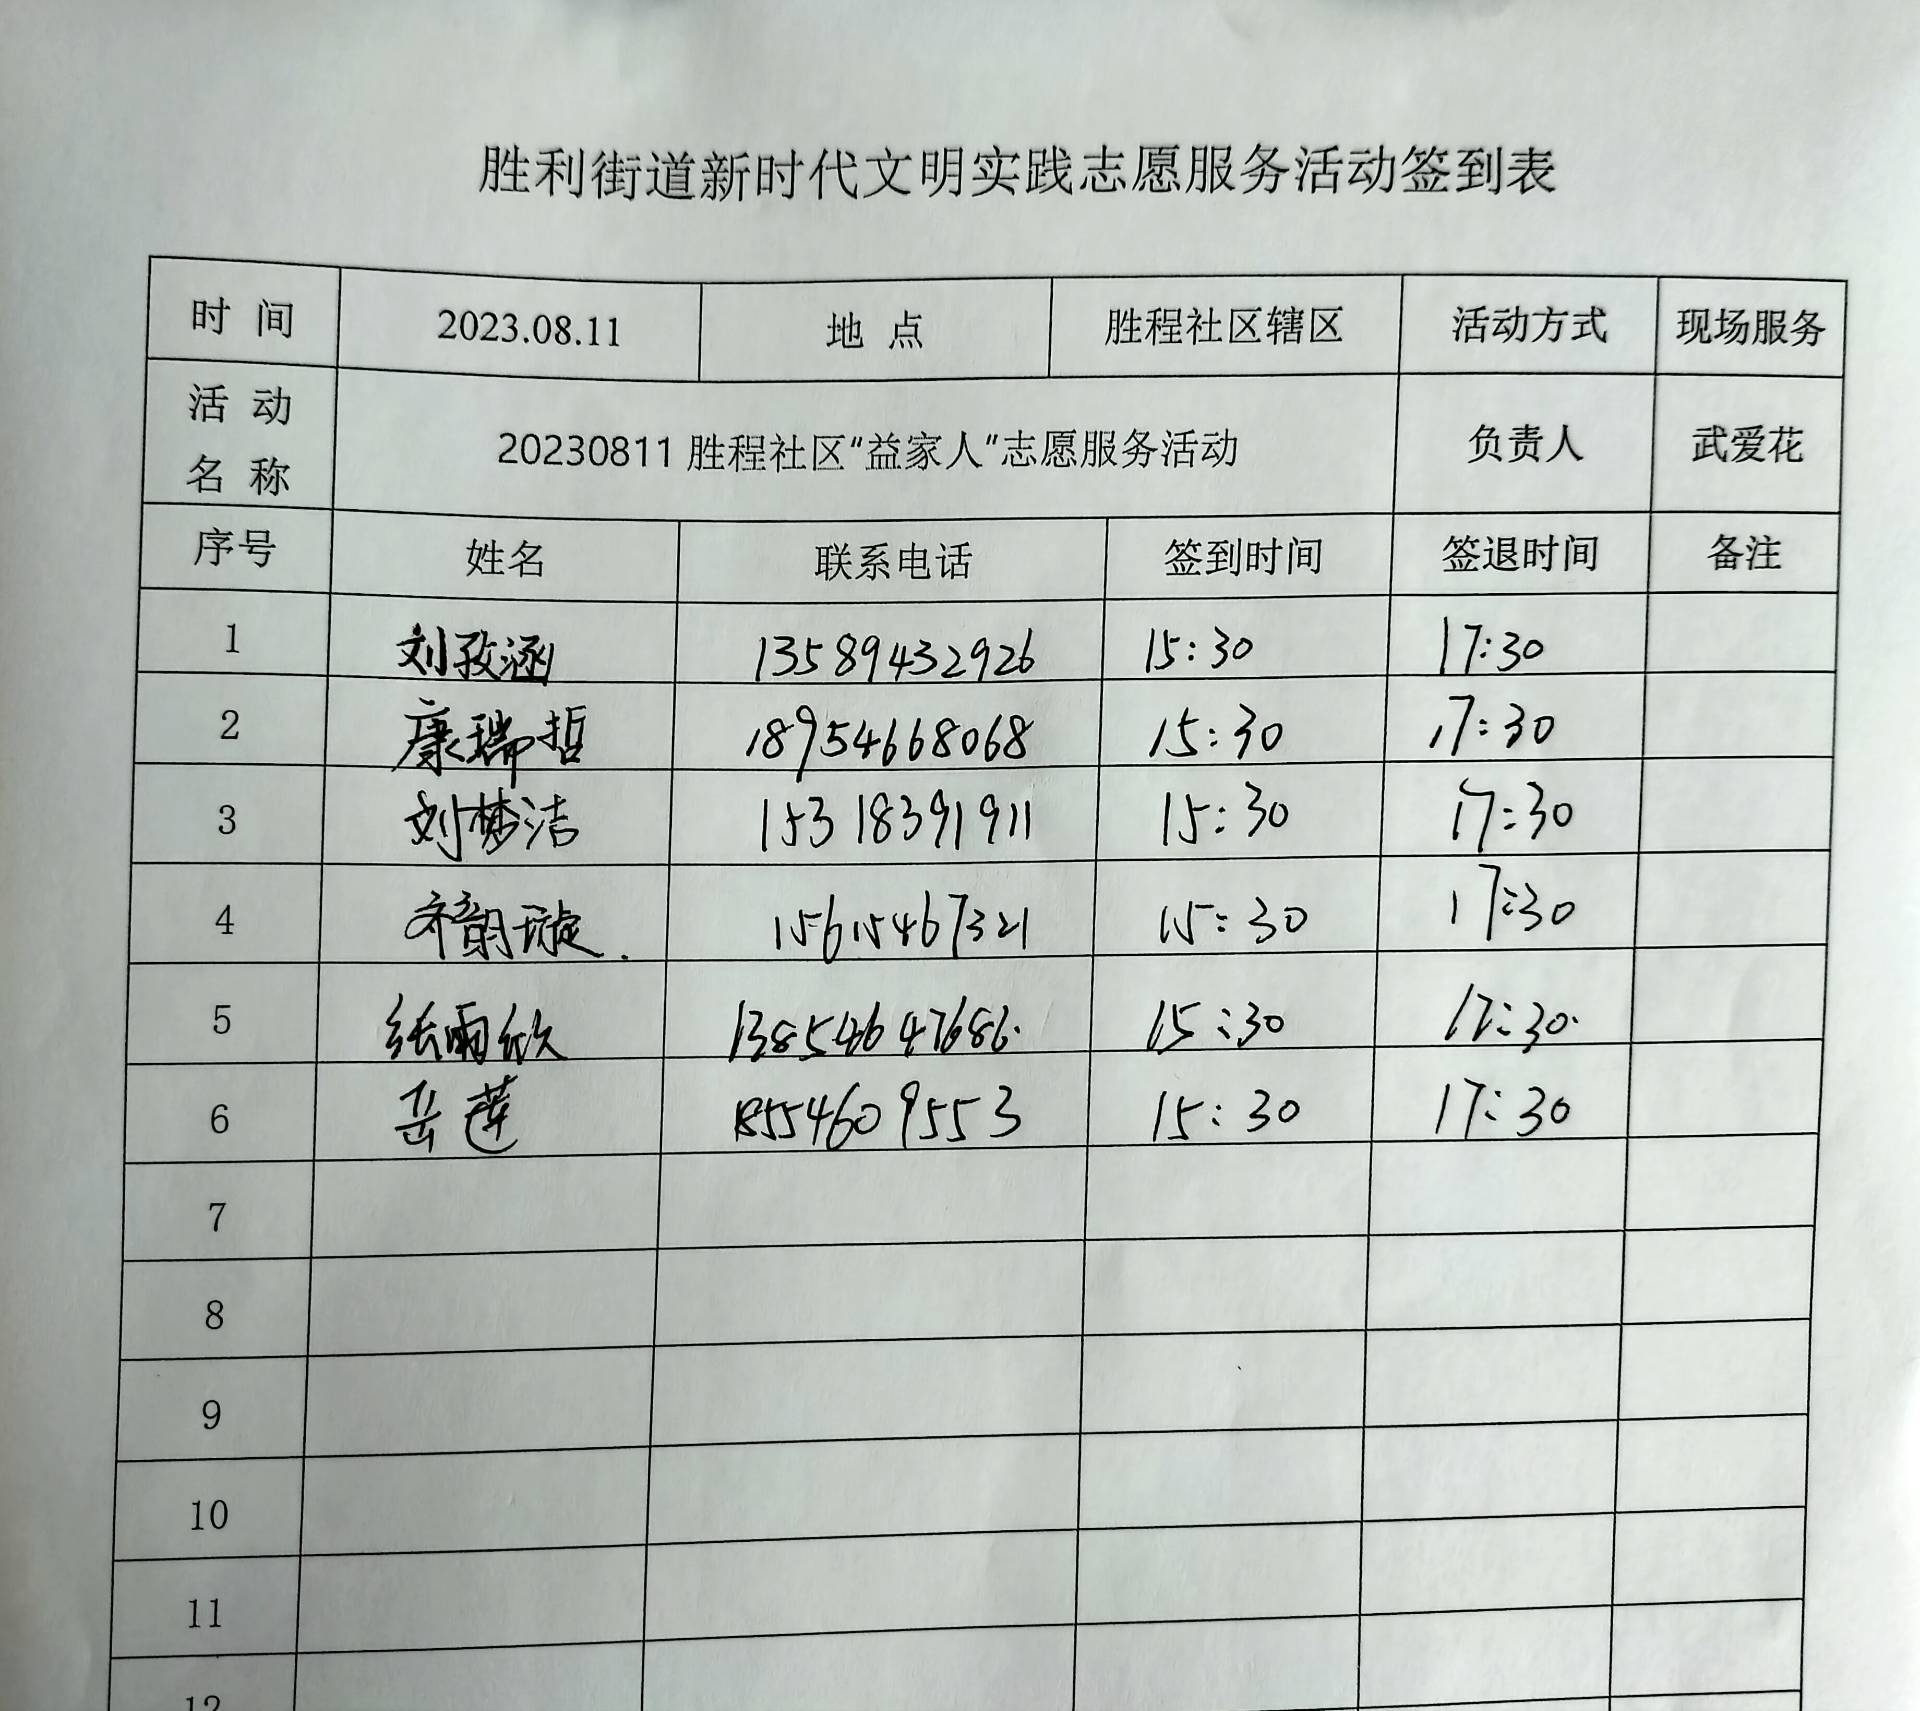 胜利街道新时代文明实践志愿服务活动签到表
时 间 2023.08.11 地 点 胜程社区辖区 活动方式 现场服务
活 动
名 称 20230811胜程社区“益家人”志愿服务活动 负责人 武爱花
序号 姓名 联系电话 签到时间 签退时间 备注
1 刘孜涵 13589432926 15:30 17:30
2 康瑞哲 18954668068 15:30 17:30
3 刘梦洁 15318391911 15:30 17:30
4 齐韵璇. 15615467321 15:30 17:30
5 张雨欣 13854647686. 15:30 17:30.
6 岳莲 18554609553 15:30 17:30
7
8
9
10
11
12